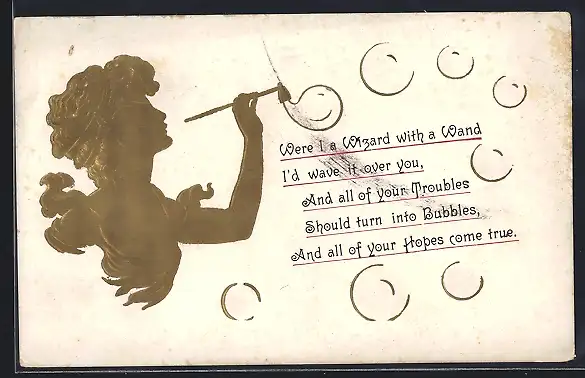 Were I a Wizard with a Wand
I'd wave it over you,
And all of your Troubles
Should turn into Bubbles,
And all of your Hopes come true.